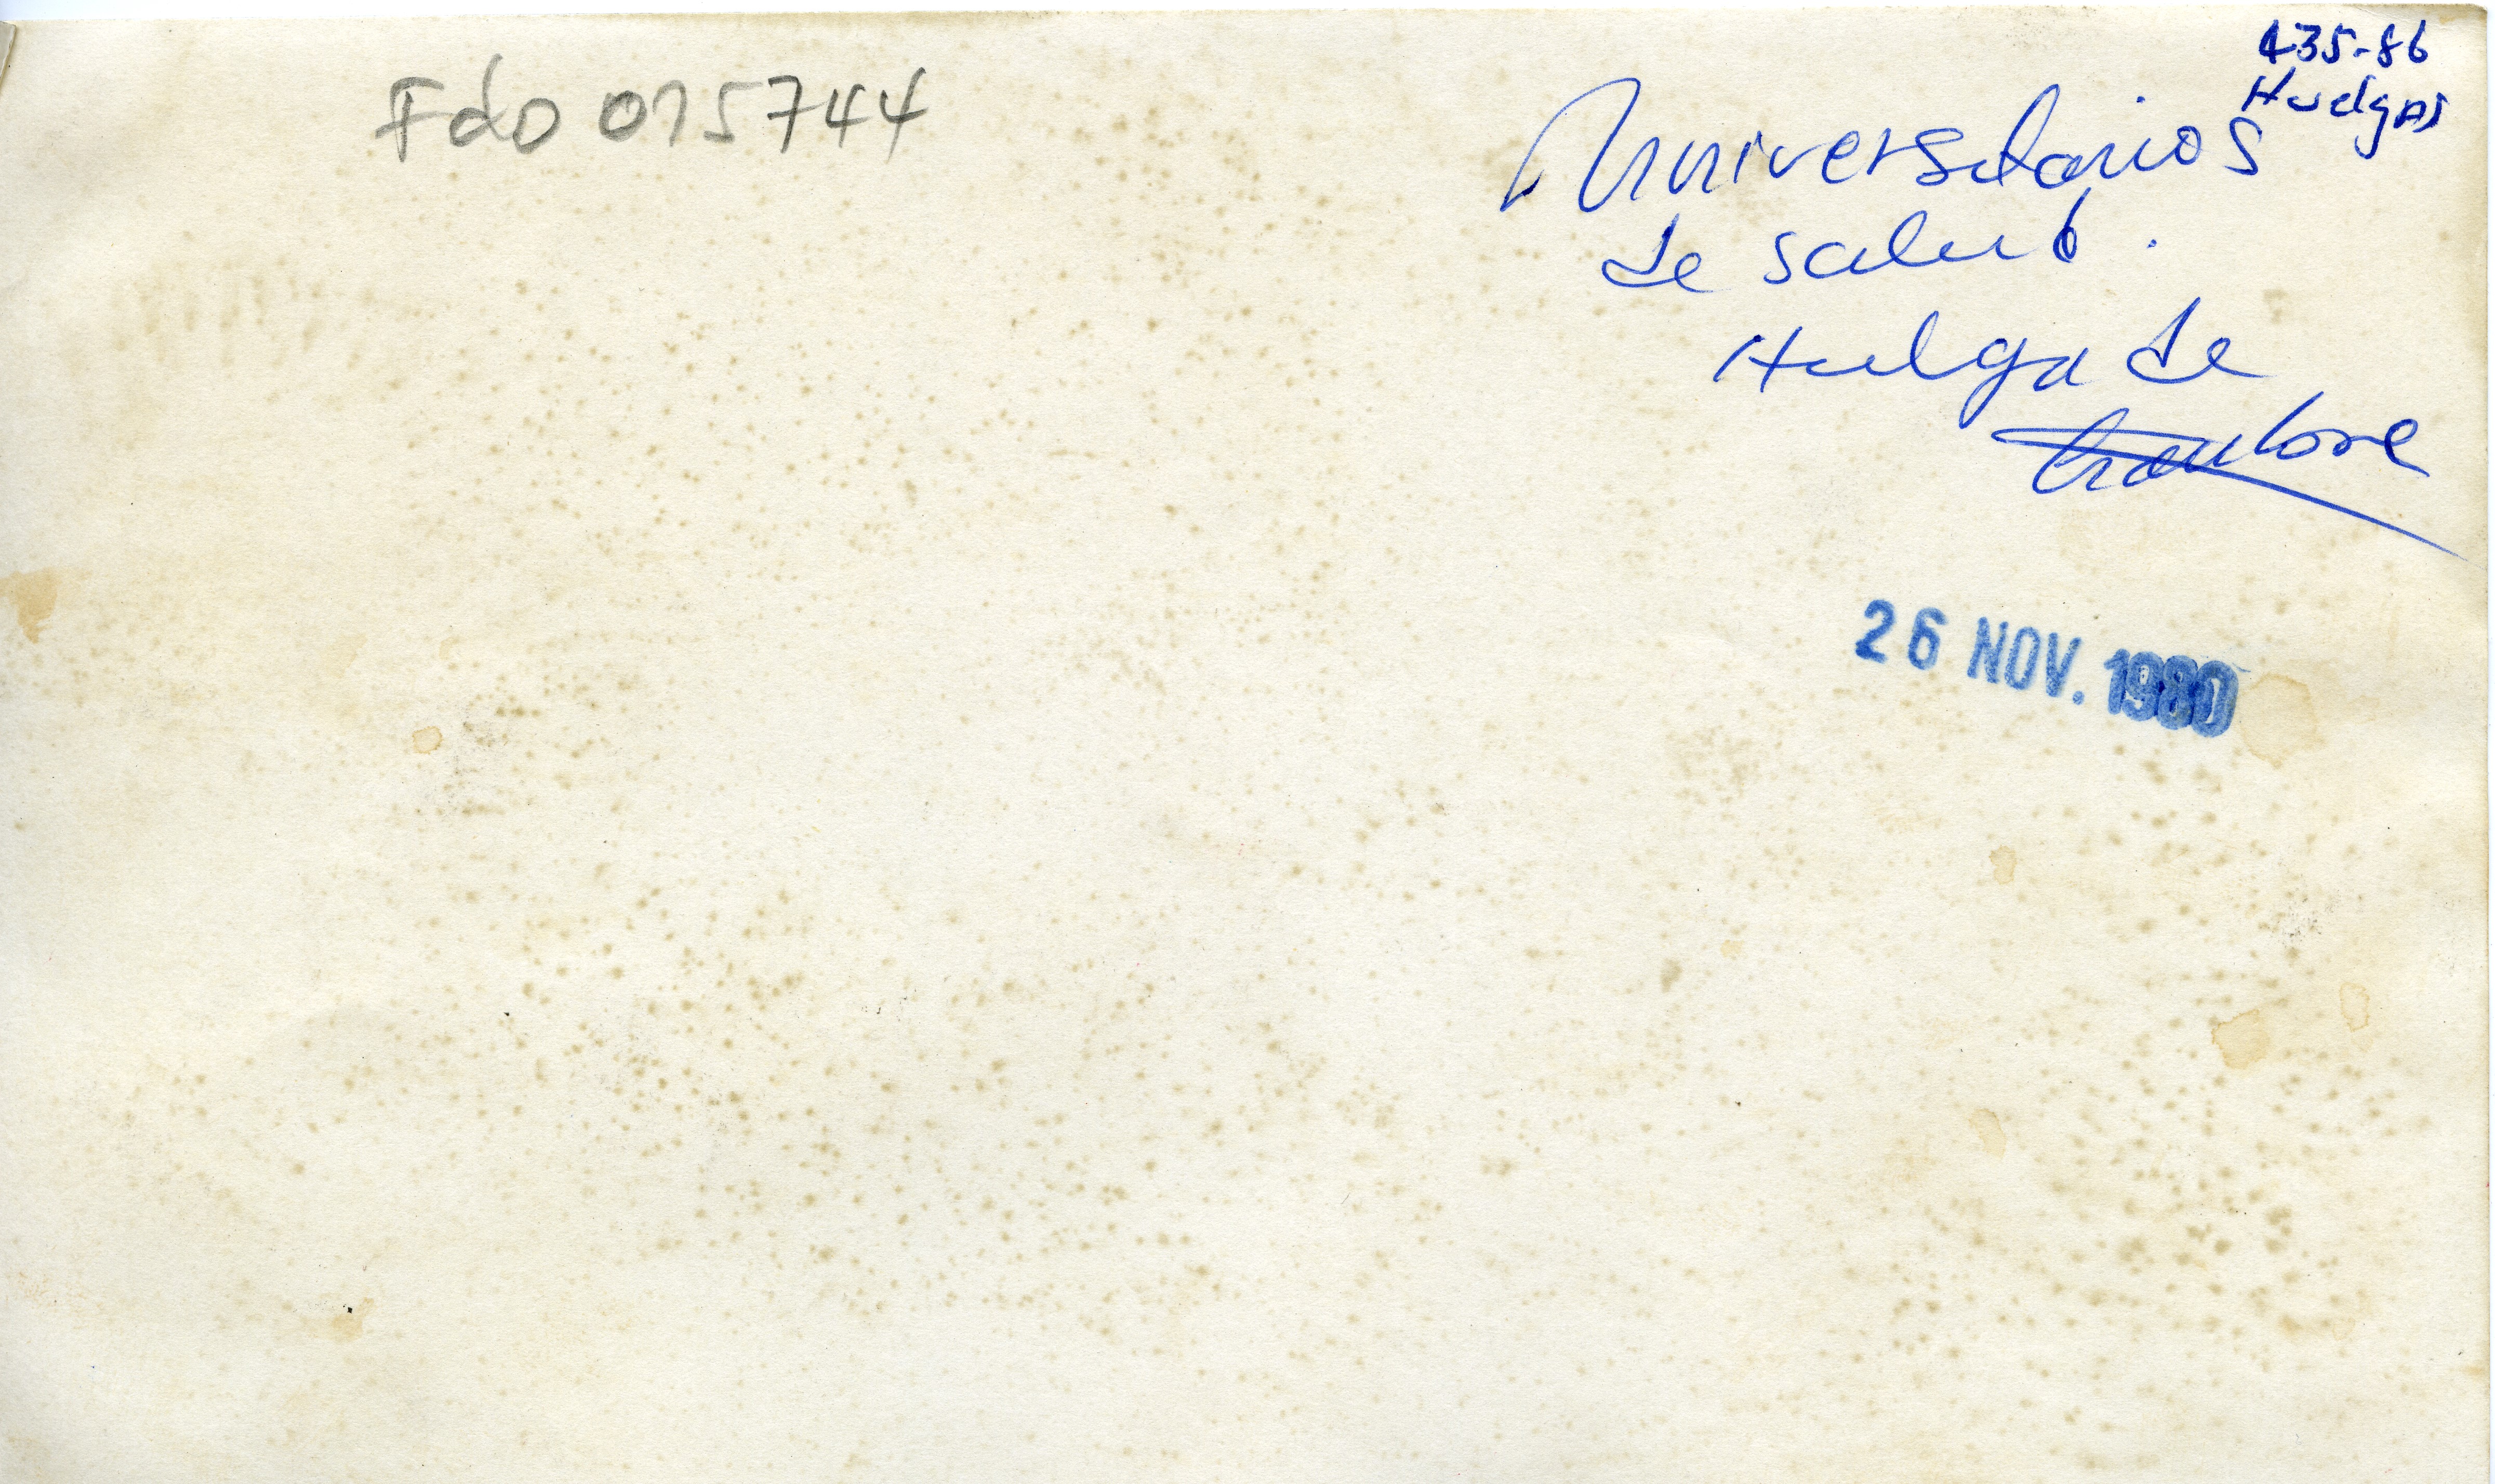 Fdo 015744
435-86
Huelgas
Universitarios
de salud.
Hulga de
hambre
26 NOV. 1980